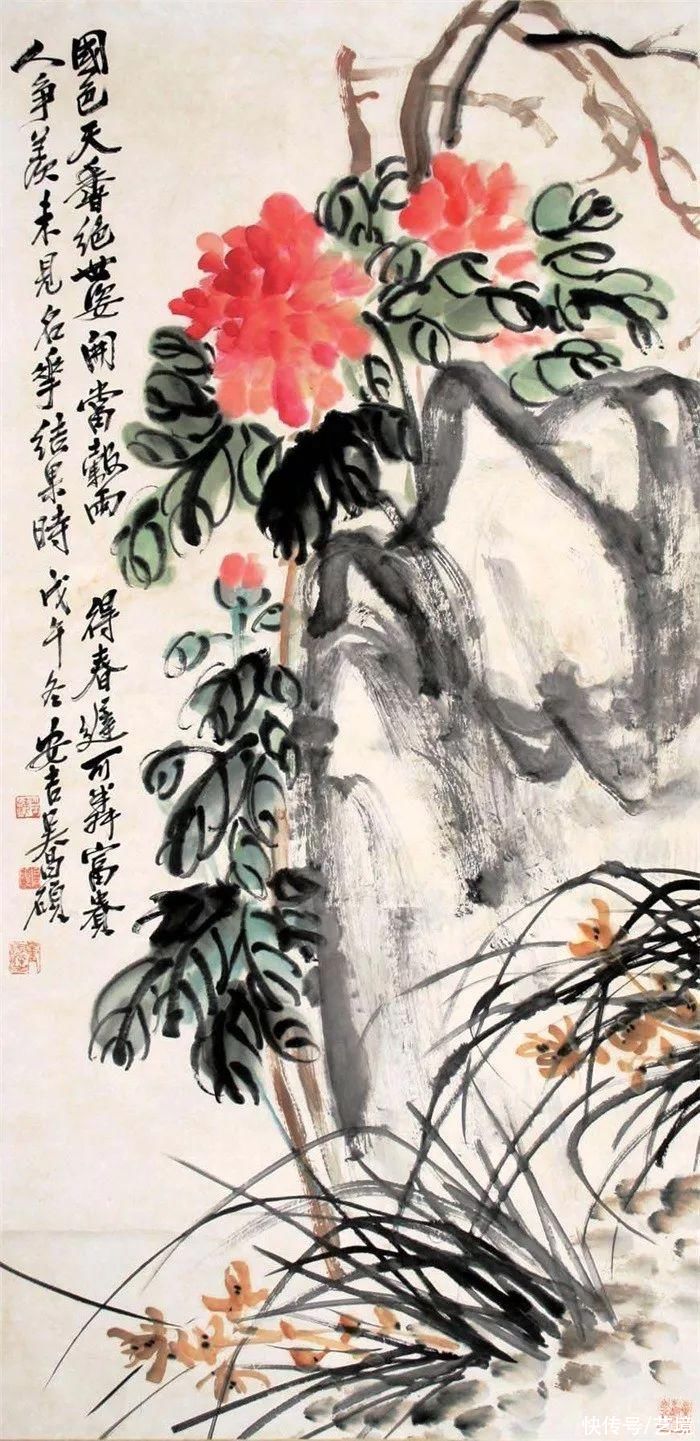 國色天香絕世姿開當穀雨
得春遲可憐富貴
人爭羨未見名華結果時戊午冬安吉吳昌碩
快传号/艺境